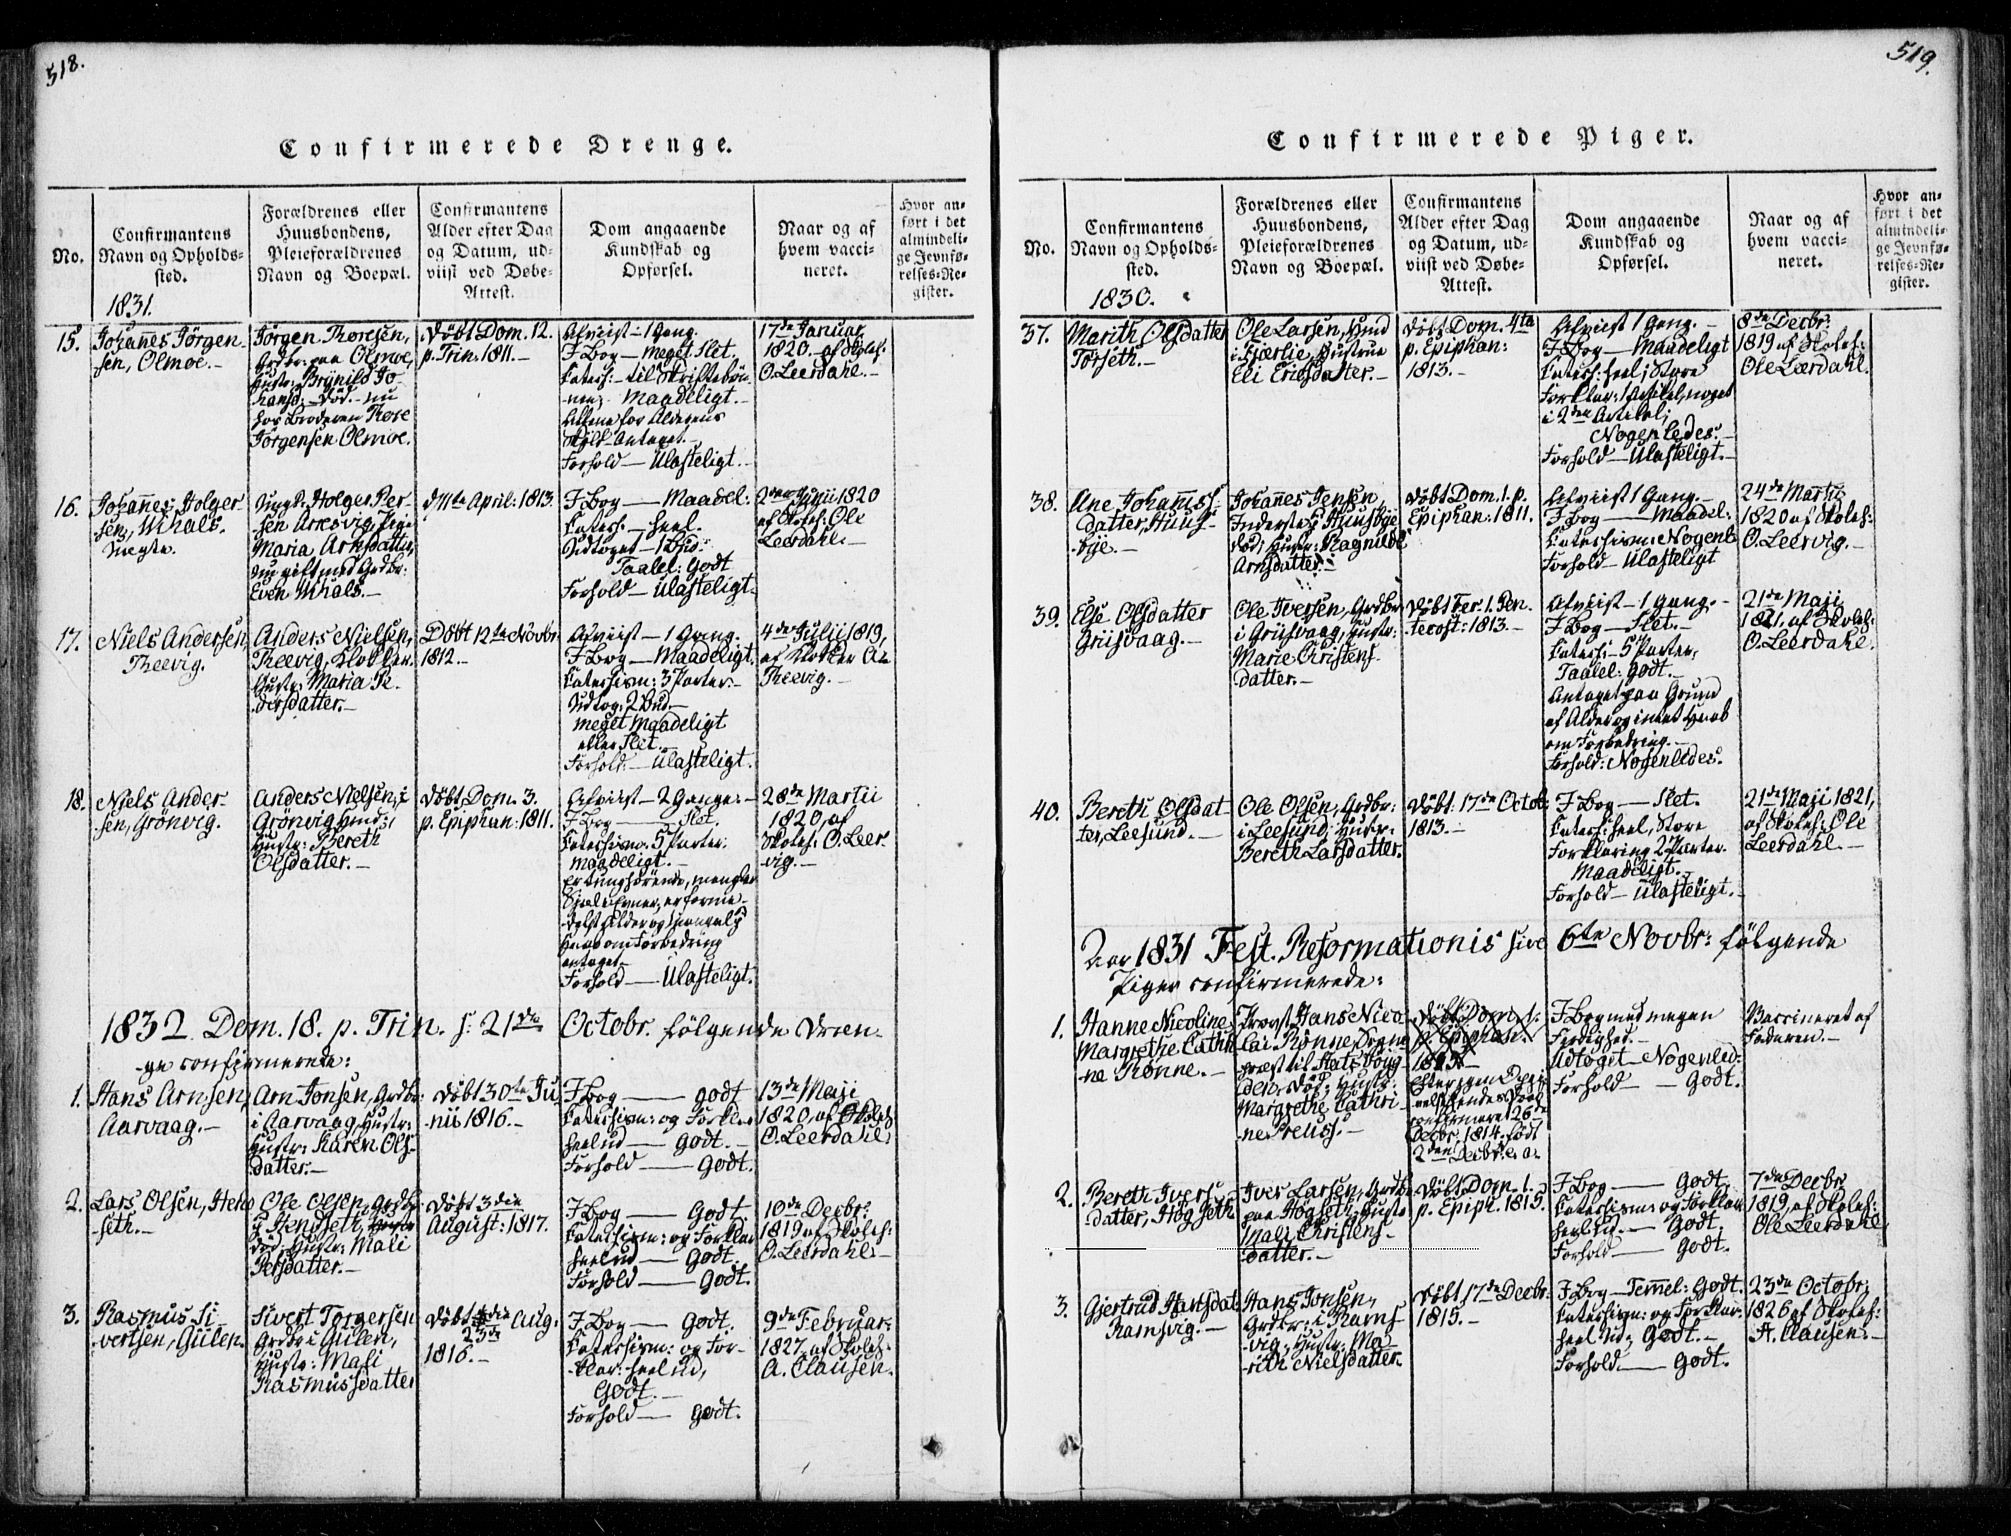 518.
Confirmerede Drenge.
No.
Confirmantens
Navn og Opholds-
sted.
1831.
Forældrenes eller
Huusbondens,
Pleieforældrenes
Navn og Boepæl.
Confirmantens
Alder efter Dag
og Datum, ud-
viist ved Døbe-
Attest.
Dom angaaende
Kundskab og
Opførsel.
Naar og af
hvem vacci-
neret.
Hvor an-
ført i det
almindeli-
ge Jevnfø-
relses-Re-
gister.
15.
Johannes Jörgen-
sen, Olmoe.-
Jörgen Thoresen,
Grdbr: paa Olmoe,
Hustr: Brynild Jo-
hansd: - Död. - nu
hos Broderen Thore
Jörgensen Olmoe.
Döbt Dom. 12.
p. Trin. 1811.-
Afviist - 1 Gang.
I Bog - meget Slet.
Catech: - til Skriftebön-
nen; Maadeligt. -
Alderens
Skyld Antaget.-
Forhold - Ulasteligt.-
17de Januar
1820. af Skoleh:
O. Leerdahl.-
16.
Johannes Holger-
sen, Whals.
Uægte.
Ungk: Holger Per-
sen Arnsvig, Pige
Maria Arnsdatter,
nu gift med Grdbr:
Even Whals. -
d. 11te April: 1813.
I Bog - Maadel:
Catech. - heel.
Udtoget - 1 Bud:
Taalel: Godt
Forhold - Ulasteligt.
2den Junii 1820
af Skoleh: Ole
Leerdahl.-
17.
Niels Andersen,
Theevig.
Anders Nielsen,
Theevig, Klokker.
Hustr: Maria Pe-
dersdatter.-
Döbt 12te Novbr.
1812.-
Afviist - 1 Gang.
I Bog - Maadeligt.
Catechism: 3 Parter.-
Udtog: 2 Bud. -
meget Maadeligt
eller Slet. -
Forhold. - Ulasteligt.
4de Julii 1819,
af Klokker A.
Theevig.-
18.
Niels Ander-
sen, Grönvig.
Anders Nielsen, i
Grönvig Hmd:,
Hustr: Bereth
Olsdatter.-
Döbt Dom. 3.
p. Epiphan: 1811.
Afviist - 2 Gange. -
I Bog - Slet.
Catechismo: 5 Parter.
maadeligt.-
er tunghörende, mangler
Sjæle Evner, er formedelst Alder og
Haab om Forbedring
antaget -
Forhold - Ulasteligt.
28de Martii
1820, af
Skoleh: O. Leer-
vig.-
1832. Dom. 18. p. Trin. s: 21de Octobr. fölgende Dren-
ge confirmerede:
1.
Hans Arnsen,
Aarvaag.-
Arn Jonsen, Grdbr:
i Aarvaag, Hustr:
Hustr: Karen Ols-
datter.-
Döbt 30te Ju-
nii 1816.-
I Bog - godt
Catechism: og Forklar:
heel ud - Godt.-
Forhold - Godt.
13de Maji
1820, af Skoleh:
O. Leerdahl.
2.
Lars Olsen, Hend-
seth.-
Ole Olsen, Grdbr:
i Hendseth,
död, Hustr: Mali
Persdatter.-
Döbt 3die
August: 1817.
I Bog - Godt
Catechism: og Forklar
heel ud - Godt.
Forhold - Godt.
10de Decbr:
1819 af Skoleh:
O. Leerdahl.-
3.
Rasmus Si-
vertsen, Gülen.
Sivert Torgersen
Grdbr: i Gülen,
Hustr: Mali
Rasmusdatter
Döbt 25de Aug:
1816.-
I Bog - Godt.
Catechism: og For-
klar: heel ud,
Godt.-
Forhold - Godt.
9de Februar:
1827, af Skoleh:
A. Clausen.
519.
Confirmerede Piger.
No.
Confirmantens
Navn og Opholds-
sted.
1830.
Forældrenes eller
Huusbondens,
Pleieforældrenes
Navn og Boepæl.
Confirmantens
Alder efter Dag
og Datum, ud-
viist ved Døbe-
Attest.
Dom angaaende
Kundskab og
Opførsel.
Naar og af
hvem vacci-
neret.
Hvor an-
ført i det
almindeli-
ge Jevnfø-
relses-Re-
gister.
37.
Marith Olsdatter
Torseth.-
Ole Larsen, Hmd
i Fjærlie, Hustrue
Eli Ericsdatter.-
Döbt Dom. 4ta
p. Epiphan:
1813.-
Afviist 1 Gang.-
I Bog - Maadeligt
Catech: heel; Store
Forklar: 1 Artikel, noget
i 2den Artikel;
Nogenledes.-
Forhold - Ulasteligt.-
8de Decbr:
1819 af Skoleh:
Ole Leerdahl.
38.
Ane Johannes-
datter, Huus-
bye.-
Johannes Jensen,
Inderste i Huusbye
död; Hustr: Ragnilde
Arnsdatter.-
Döbt Dom. 1. p.
Epiphan: 1811.
Afviist 1 Gang.-
I Bog - Maadel:
Catechism: Nogenl:
Forhold - Ulasteligt
24de Martii
1820 af Skoleh:
O. Leervig.-
39.
Else Olsdatter
Griisvaag.-
Ole Iversen, Grdbr:
i Griisvaag, Hustr:
Marie Christens-
datter.-
Döbt Fer. 1. Pen-
tecost: 1813.-
Afviist - 1 Gang.-
I Bog - Slet.-
Catech: - 5 Parter,
Taalel: Godt.-
Antaget paa Grund
af Alder og intet Haab
om Forbedring.-
Forhold: Nogenledes.
21de Maji
1821. af Skoleh:
O. Leerdahl.
40.
Bereth Olsdat-
ter, Leesund.-
Ole Olsen, Grdbr:
i Leesund; Hustr:
Bereth Larsdatter.
Döbt 17de Octob:
1813.-
I Bog - Slet.
Catech: heel, Store
Forklaring 2 Parter.
Maadeligt.-
Forhold - Ulasteligt.-
21de Maji 1821,
af Skoleh: Ole
Leerdahl.-
Aar 1831 Fest. Reformationis sive 6te Novbr: fölgende
Piger confirmerede:
1.
Hanne Nicoline
Margrethe Cathri-
ne Rönne.-
Provst Hans Nico-
lai Rönne, Sogne-
præst til
död, Hustr:
Margrethe Cathri-
ne Preuss.-
Döbt Dom. 1.
p. Epiphan.
1815.
26de
Decbr. 1814. född
2den Decbr. e. a.
I Bog med megen
Færdighed.-
Udtoget - Nogenled:
Forhold - Godt.
Vaccineret af
Faderen.-
2.
Bereth Ivers-
datter, Högseth.
Iver Larsen, Grdbr
paa Högseth, Hustr
Mali Christens-
datter.-
Döbt Dom. 1.
p. Epiph. 1815.
I Bog - Godt.
Catechism: og Forklar
heel ud. - Godt.
Forhold - Godt.
7de Decbr
1819, af Skoleh:
Ole Leerdahl.
3.
Gjertrud Hansdat:
Ramsvig.-
Hans Jonsen,
Grdbr: i Rams-
vig, Hustr: Ma-
rith Nielsdatter.
Döbt 17de Decbr:
1815.-
I Bog - Temmel: Godt.
Catechism: og Forklar:
heel ud; Godt.-
Forhold - Godt.
23de Octobr:
1826 af Skoleh:
A. Clausen.-